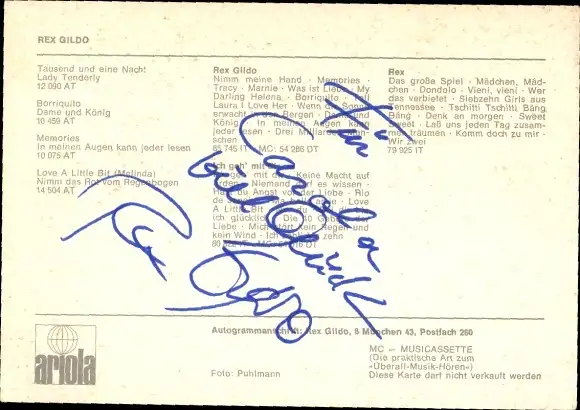 REX GILDO
Tausend und eine Nacht
Lady Tenderly
12 090 AT
Borriquito
Dame und König
16 459 AT
Memories
In meinen Augen kann jeder lesen
10 075 AT
Love A Little Bit (Melinda)
Nimm das Rot vom Regenbogen
14 504 AT
Rex Gildo
Nimm meine Hand · Memories ·
Tracy · Marnie · Was ist Liebe · My
Darling Helena · Borriquito · Tell
Laura I Love Her · Wenn die Sonne
erwacht in den Bergen · Dame und
König · In meinen Augen kann
jeder lesen · Drei Milliarden Men-
schen
85 745 IT · MC: 54 286 DT
Ich geh' mit dir
mit dir · Keine Macht auf
Erden · Niemand darf es wissen ·
Hast du Angst vor der Liebe · Rio
de · Love
A Little Bit · du
ich glücklich · Die 10 Gebote der
Liebe · Mich stört kein Regen und
kein Wind · Ich zehn
Rex
Das große Spiel · Mädchen, Mäd-
chen · Dondolo · Vieni, vieni · Wer
das verbietet · Siebzehn Girls aus
Tennessee · Tschitti Tschitti Bäng
Bäng · Denk an morgen · Sweet
Sweet · Laß uns jeden Tag zusam-
men träumen · Komm doch zu mir ·
Wir zwei
79 925 IT
Für
Carola
viel Glück
Rex Gildo
Autogrammanschrift: Rex Gildo, 8 München 43, Postfach 260
MC — MUSICASSETTE
(Die praktische Art zum
»Überall-Musik-Hören«)
Diese Karte darf nicht verkauft werden
Foto: Puhlmann
ariola